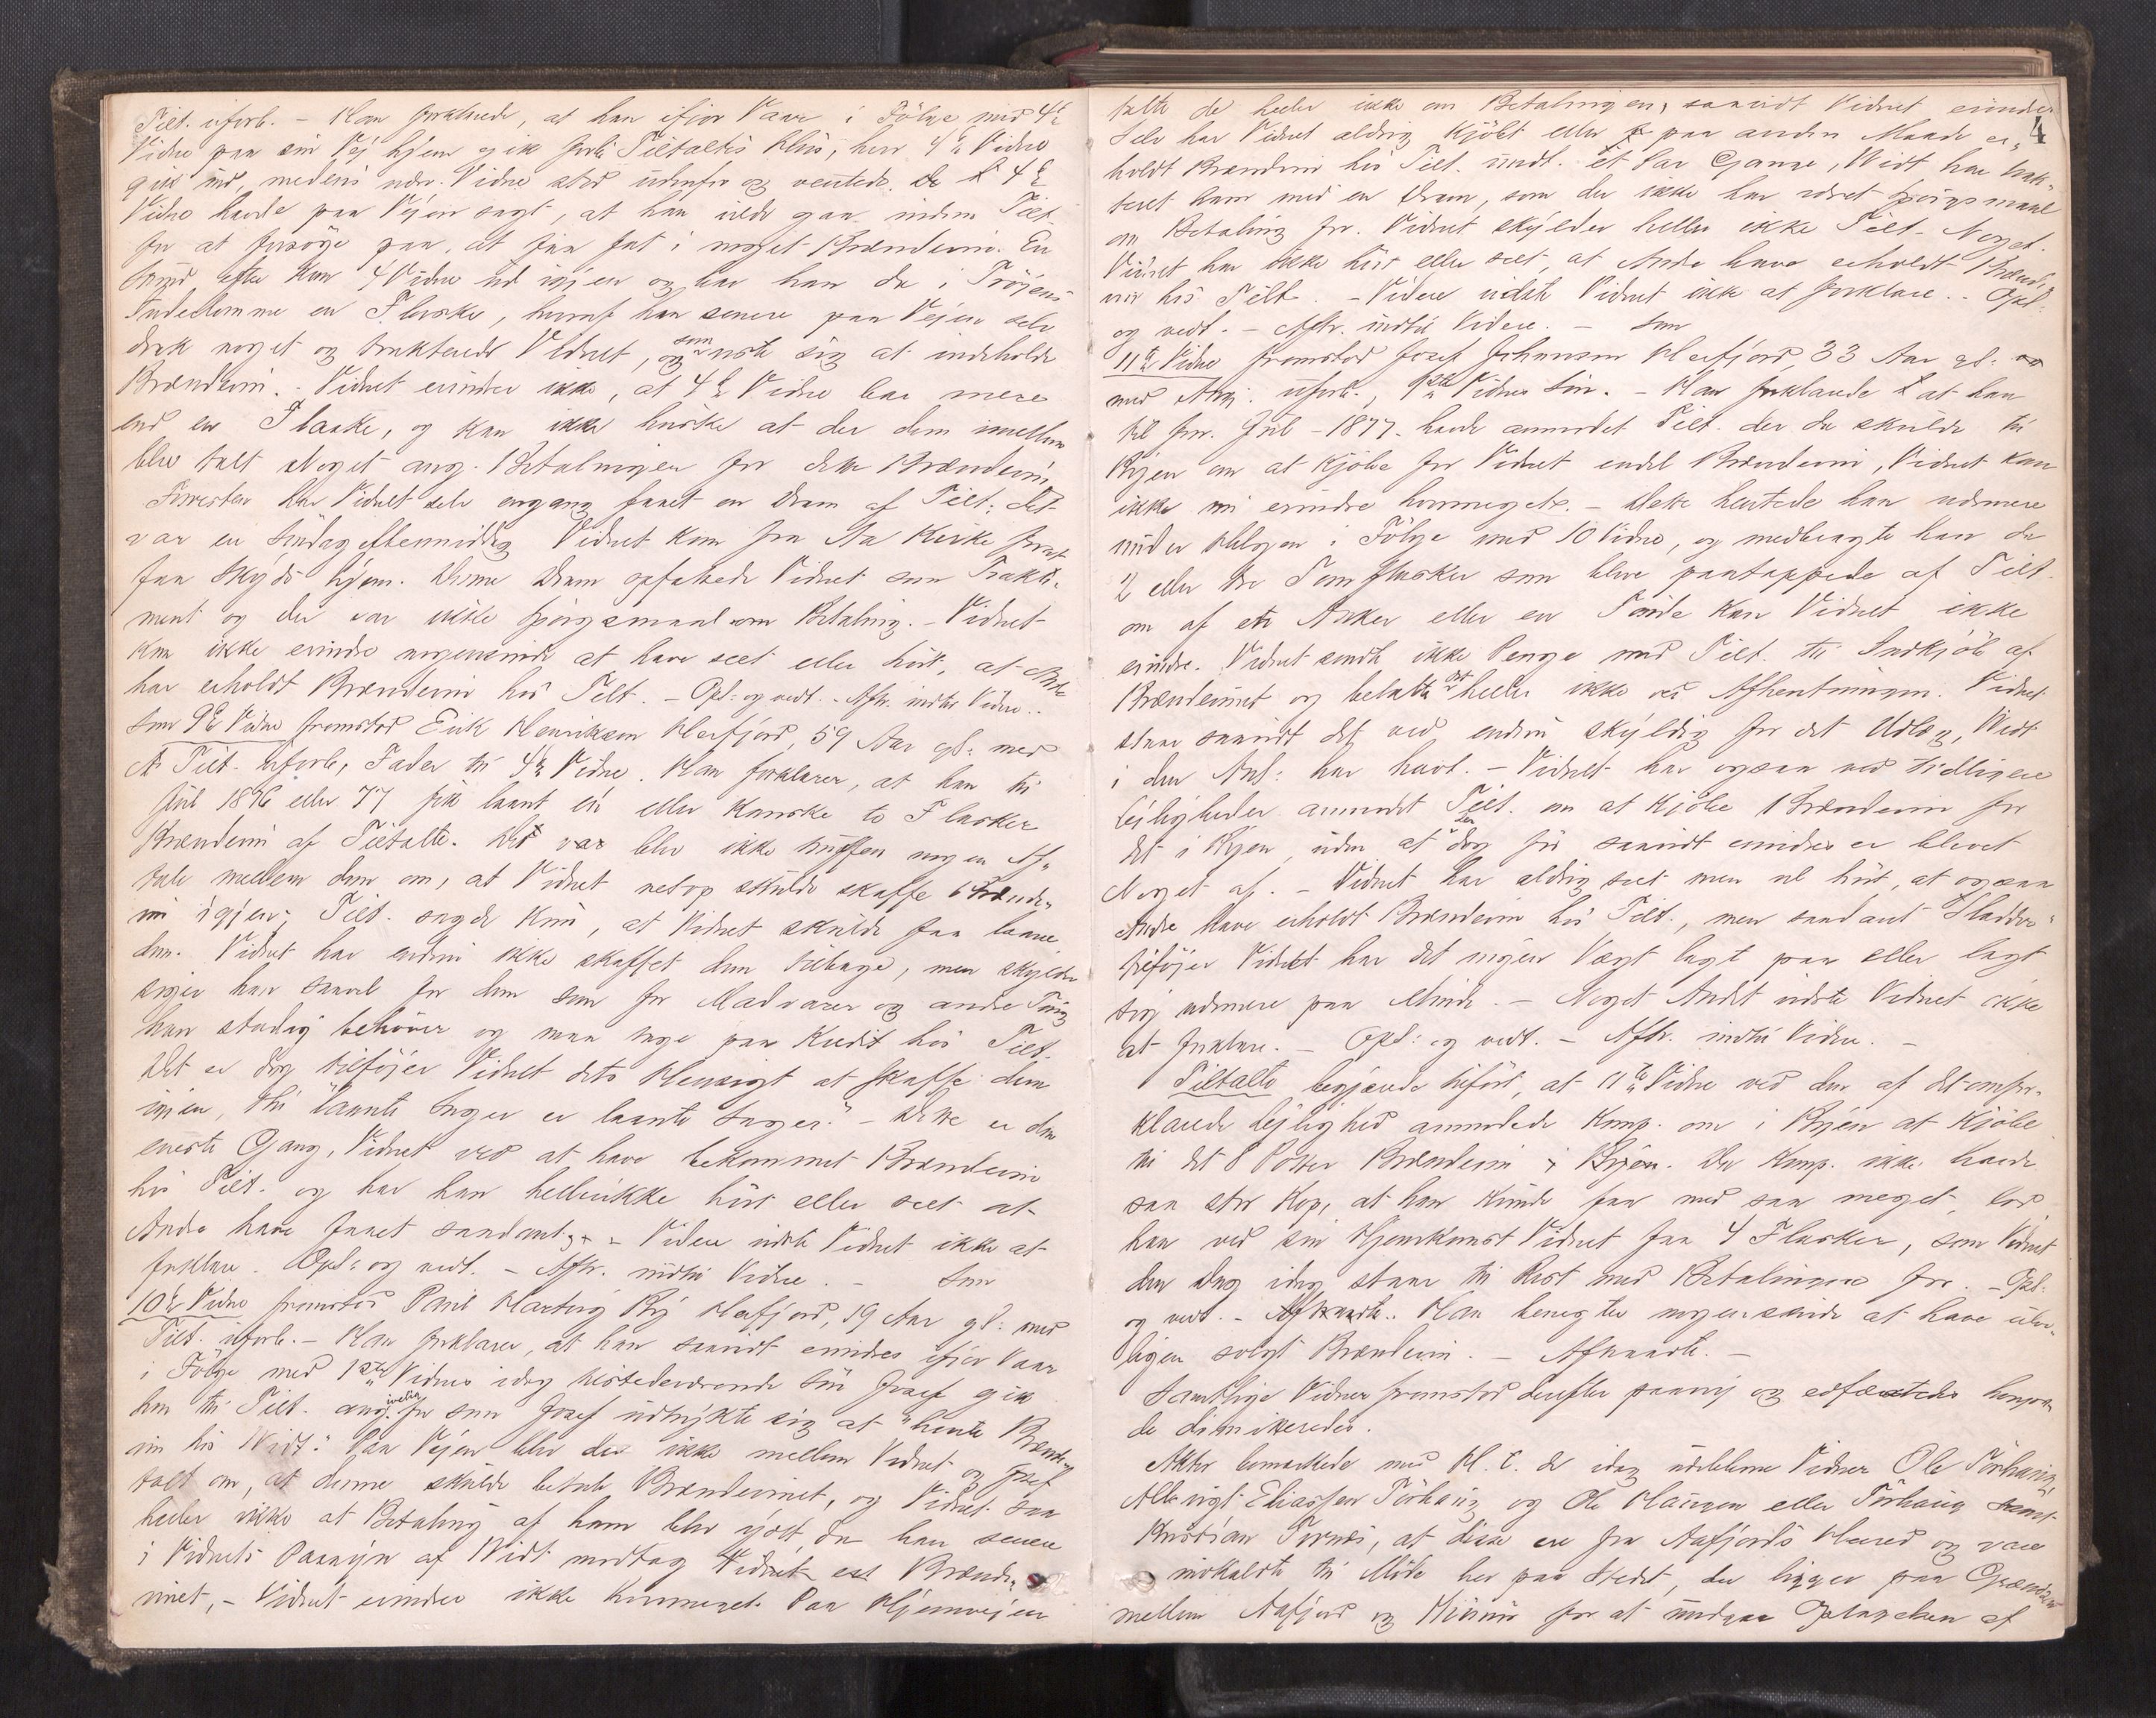 Tilt. uforb. – Han forklarede, at han ifjor Vaar i Følge med 4de
Vidne paa sin Vej hjem gik forbi Tiltaltes Hus, hvor 4de Vidne
gik ind, medens nærv. Vidne stod udenfor og ventede. 4de
Vidne havde paa Vejen sagt, at han vilde gaa indom Tilt.
for at forsøge paa, at faa fat i noget Brændevin. En
Stund efter kom 4 Vidne ud igjen og har han da i Trøjens
Inderlomme en Flaske, hvoraf han senere paa Vejen selv
drak noget og trakterede Vidnet, og som viste sig at indeholde
Brændevin. – Vidnet erindrer ikke, at 4de Vidne bar mere
end en Flaske, og kan ikke huske at der dem imellem
blev talt Noget ang. Betalingen for dette Brændevin.
Forresten har Vidnet selv engang faaet en Dram af Tilt: det
var en Søndag eftermiddag Vidnet kom fra Aa Kirke for at
faa Skyds hjem. Denne Dram opfattede Vidnet som Trakte-
ment og der var ikke Spørgsmaal om Betaling. – Vidnet
kan ikke erindre nogensinde at have seet eller hørt, at Andre
har erholdt Brændevin hos Tilt. – Opl: og vedt. – Aftr. indtil Videre. –
Som 9de Vidne fremstod Erik Henriksen Herfjord, 59 Aar gl: med
Tilt. uforb., Fader til 4de Vidne. Han forklarer, at han til
Jul 1876 eller 77 fik laant én eller kanske to Flasker
Brændevin af Tiltalte. Det var blev ikke truffen nogen Af-
tale mellem dem om, at Vidnet netop skulde skaffe Brænde-
vin igjen; Tilt. sagde kun, at Vidnet skulde faa laane
dem. Vidnet har endnu ikke skaffet dem tilbage, men skylder
siger han saavel for dem som for Madvarer og andre Ting
han stadig behøver og maa tage paa Kredit hos Tilt.
Det er dog tilføjer Vidnet dets Hensigt at skaffe dem
igjen, thi "laante Sager er laante Sager." – Dette er den
eneste Gang, Vidnet ved at have bekommet Brændevin
hos Tilt. og har han hellerikke hørt eller seet at
Andre have faaet saadant. – Videre vidste Vidnet ikke at
forklare. Opl: og vedt. – Aftr. indtil Videre. – Som
10de Vidne fremstod Paul Hartvig Ry Herfjord, 19 Aar gl: med
Tilt. uforb. – Han forklarer, at han saavidt erindres ifjor Vaar
i Følge med 1ste Vidnes idag tilstedeværende Søn Josef gik
hen til Tilt. angivelig for som Josef udtrykte sig at "hente Brænde-
vin hos Widt." Paa Vejen blev der ikke mellem Vidnet og Josef
talt om, at denne skulde betale Brændevinet, og Vidnet saa
heller ikke at Betaling af ham blev ydet, da han senere
i Vidnets Paasyn af Widt modtog Vidnet Brænde-
vinet, – Vidnet erindrer ikke hvormeget. Paa Hjemvejen
4
talte de heller ikke om Betalingen, saavidt Vidnet erindrer
Selv har Vidnet aldrig kjøbt eller paa anden Maade er-
holdt Brændevin hos Tilt. undt. et Par Gange, Widt har trak-
teret ham med en Dram, som der ikke har været Spørgsmaal
om Betaling for. Vidnet skylder heller ikke Tilt. Noget.
Vidnet har ikke hørt eller seet, at Andre have erholdt Brænde-
vin hos Tilt. – Videre vidste Vidnet ikke at forklare. – Opl:
og vedt. – Aftr. indtil Videre. – Som
11te Vidne fremstod Josef Johansen Herfjord, 33 Aar gl:
med Ang. uforb., 1ste Vidnes Søn. – Han forklarede at han
til for. Jul – 1877 – havde anmodet Tilt. der da skulde til
Byen om at kjøbe for Vidnet endel Brændevin, Vidnet kan
ikke nu erindre hvormeget. – Dette hentede han nærmere
under Helgen i Følge med 10 Vidne, og medbragte han da
2 eller tre Tomflasker som bleve paatappede af Tilt.
om af et Anker eller en Tønde kan Vidnet ikke
erindre. Vidnet sendte ikke Penge med Tilt. til Indkjøb af
Brændevinet og betalte det heller ikke ved Afhentningen. Vidnet
staar saavidt det ved endnu skyldig for det Udlæg, Widt
i den Anl: har havt. – Vidnet har ogsaa ved tidligere
Lejligheder anmodet Tilt. om at kjøbe Brændevin for
det i Byen, uden at der dog før saavidt erindres er blevet
Noget af. – Vidnet har aldrig seet men vel hørt, at ogsaa
Andre have erholdt Brændevin hos Tilt., men saadant "Sladder"
tilføjer Vidnet har det ingen Vægt lagt paa eller lagt
sig nærmere paa Minde. – Noget Andet vidste Vidnet ikke
at forklare. – Opl: og vedt. – Aftr. indtil Videre. –
Tiltalte begjærede tilført, at 11te Vidne ved den af det omfor-
klarede Lejlighed anmodede Komp. om i Byen at kjøbe
til det 8 Potter Brændevin i Byen. Da Komp. ikke havde
saa stor Kop, at han kunde faa med saa meget, lod
han ved sin Hjemkomst Vidnet faa 4 Flasker, som Vidnet
den Dag idag staar til Rest med Betalingen for. – Opl:
og vedt. – Afhørte. Han benegter nogensinde at have ulov-
ligen solgt Brændevin. – Afhørte. –
Samtlige Vidner fremstod derefter paany og edfæstedes hvorpaa
de dimitteredes.
Aktor bemærkede med H. t. de idag udeblevne Vidner Ole Tørhaug,
Albrigt Eliassen Tørhaug og Ole Haugen eller Tørhaug samt
Kristian Tornes, at disse ere fra Aafjords Herred og vare
indkaldte til Møde her paa Stedet, der ligger paa Grændsen
mellem Aafjord og for at undgaa Optagelsen af